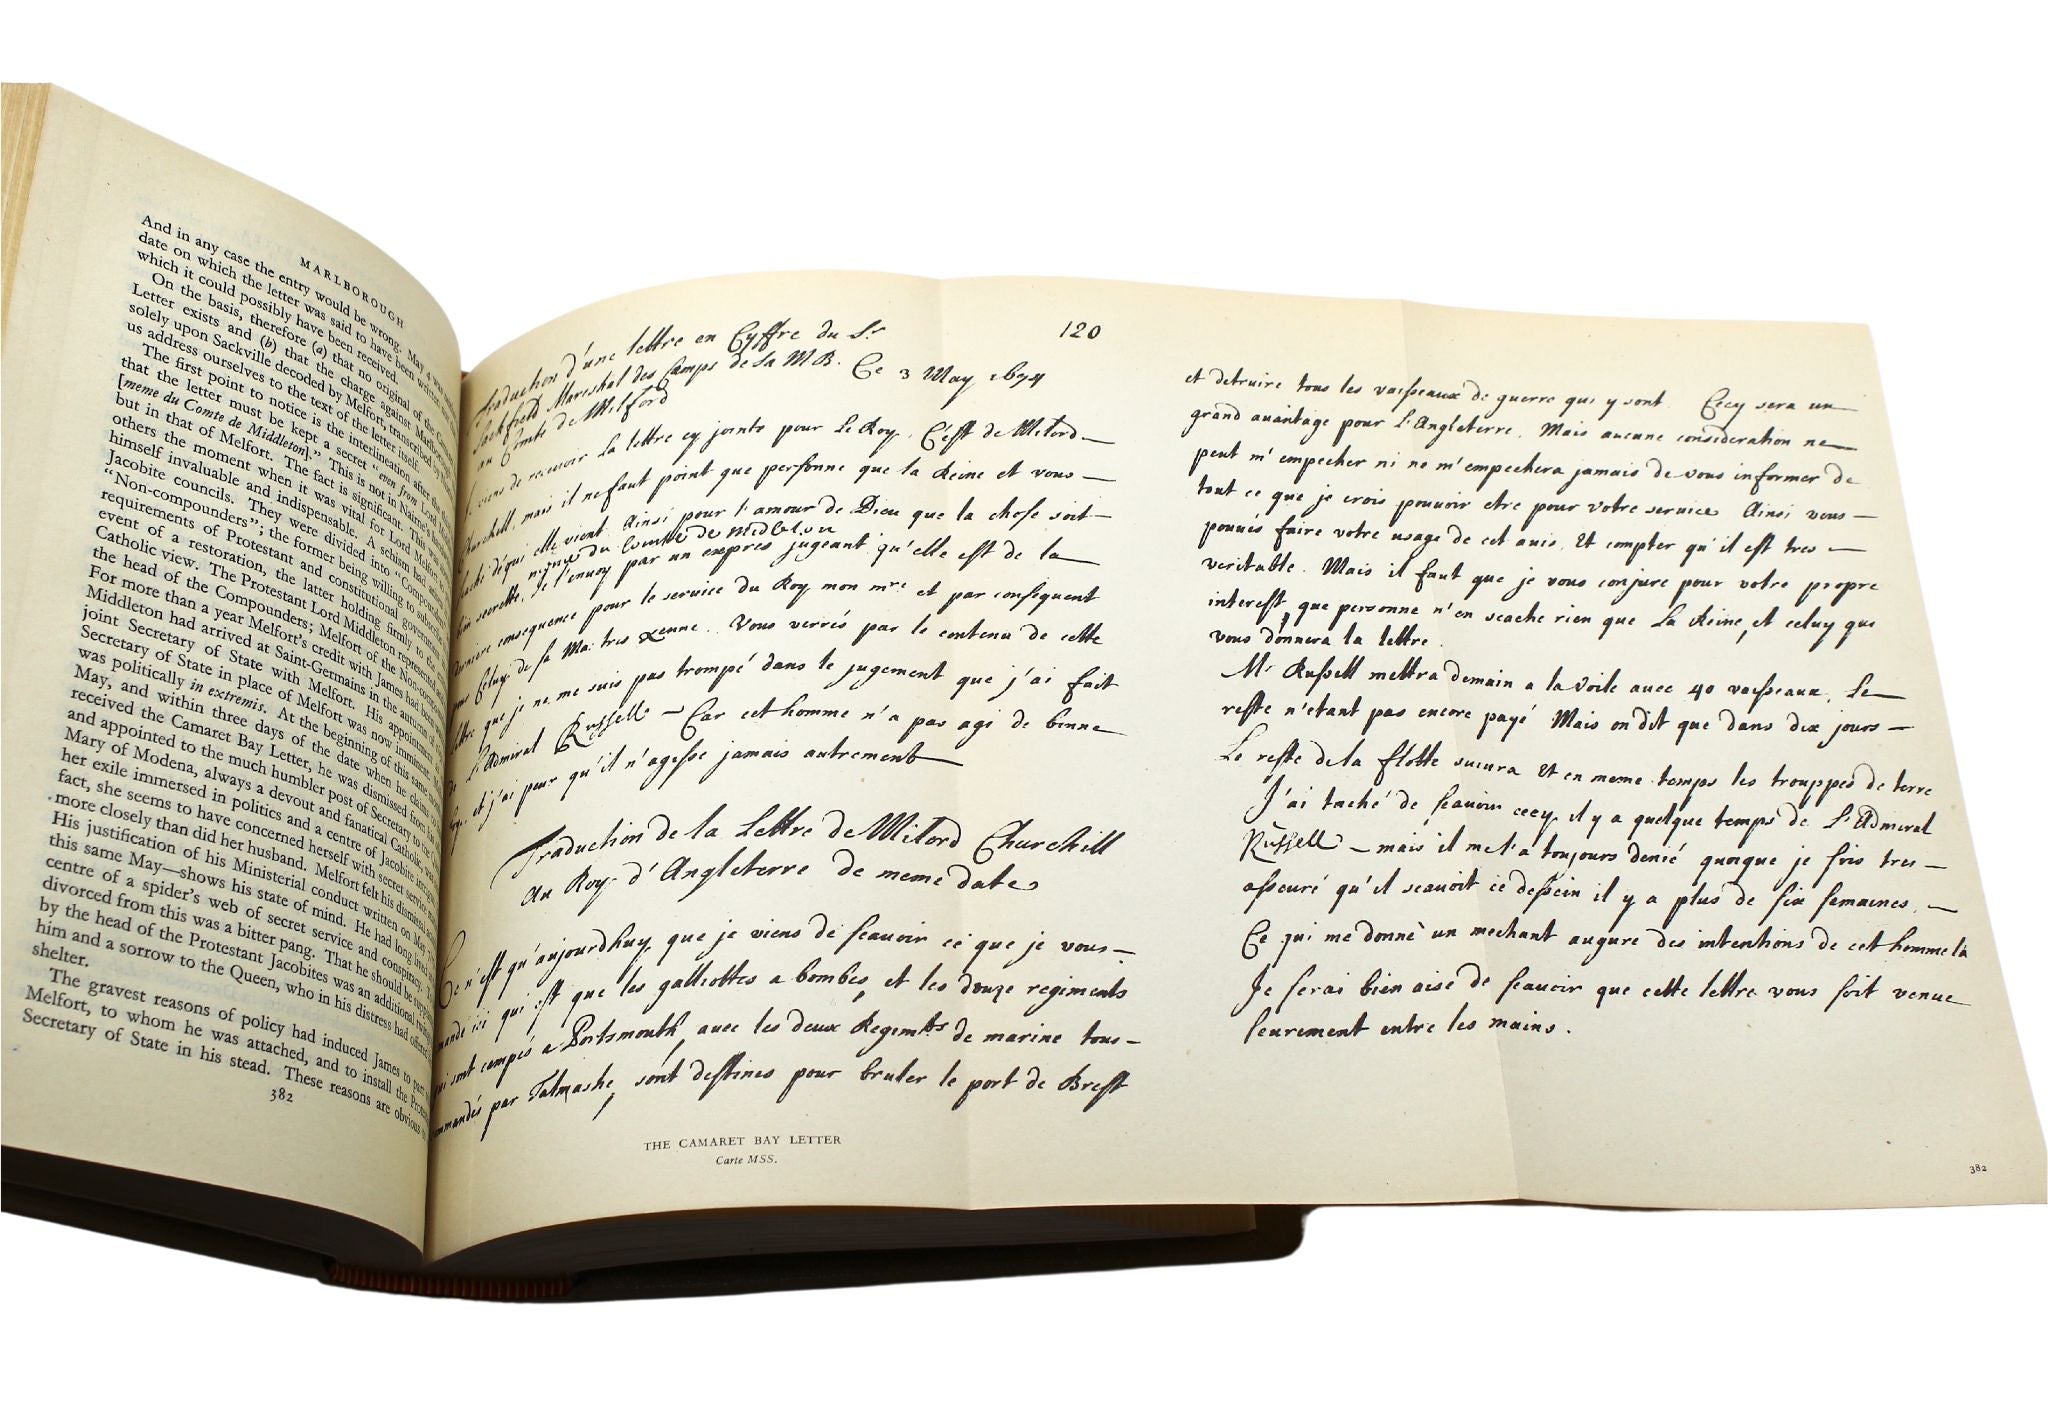 MARLBOROUGH
And in any case the entry would be wrong. May 4 was
date on which the letter was said to have been written
which it could possibly have been received.
On the basis, therefore (a) that no original of the
Letter exists and (b) that the charge against
solely upon Sackville decoded by Melfort, transcribed by
us address ourselves to the text of the letter itself.
The first point to notice is the interlineation after the
that the letter must be kept a secret "even from Lord
[meme du Comte de Middleton]." This is not in Nairne's
but in that of Melfort. The fact is significant. This was
others the moment when it was vital for Lord Melfort to
himself invaluable and indispensable. A schism had
Jacobite councils. They were divided into "Compounders"
"Non-compounders"; the former being willing to subscribe
requirements of Protestant and constitutional government
event of a restoration, the latter holding firmly to the
Catholic view. The Protestant Lord Middleton represented
the head of the Compounders; Melfort of the
For more than a year Melfort's credit with James had been
Middleton had arrived at Saint-Germains in the autumn of
joint Secretary of State with Melfort. His appointment
Secretary of State in place of Melfort was now imminent.
was politically in extremis. At the beginning of this same
May, and within three days of the date when he claims to
received the Camaret Bay Letter, he was dismissed from
and appointed to the much humbler post of Secretary to the
Mary of Modena, always a devout and fanatical Catholic, was
her exile immersed in politics and a centre of Jacobite
fact, she seems to have concerned herself with secret service
more closely than did her husband. Melfort felt his dismissal
His justification of his Ministerial conduct written on May
this same May—shows his state of mind. He had long lived
centre of a spider's web of secret service and conspiracy. To
divorced from this was a bitter pang. That he should be
by the head of the Protestant Jacobites was an additional
him and a sorrow to the Queen, who in his distress had offered
shelter.
The gravest reasons of policy had induced James to part
Melfort, to whom he was attached, and to install the
Secretary of State in his stead. These reasons are obvious
382
120
Traduction d'une lettre en Cyffre du Sr
Sackfield Mareshal des Camps de Sa M B. Ce 3 May 1694
au Comte de Milford
Je viens de recevoir La lettre cy jointe pour Le Roy. C'est de Milord—
Churchill, mais il ne faut point que personne que la Reine et vous—
sache de qui elle vient. Ainsi pour l'amour de Dieu que la chose soit—
meme du Comte de Midleton
bien secrette. Je l'envoy par un expres jugeant qu'elle est de la
derniere consequence pour le service du Roy mon mre et par consequent
pour Celuy de sa Ma: tres xenne. Vous verrés par le contenu de cette
lettre que je ne me suis pas trompé dans le jugement que j'ai fait
de L'Admiral Russell — Car cet homme n'a pas agi de bonne
foy, et j'ai peur qu'il n'agesse jamais autrement—
Traduction de la Lettre de Milord Churchill
au Roy d'Angleterre de meme date
Ce n'est qu'aujourdhuy que je viens de scavoir ce que je vous—
mande ici qui est que les galliottes a bombes, et les douze regiments
qui sont campés a Portsmouth, avec les deux Regemts de marine tous—
commandés par Talmashe, sont destines pour bruler le port de Brest
THE CAMARET BAY LETTER
Carte MSS.
et detruire tous les vaisseaux de guerre qui y sont. Cecy sera un—
grand avantage pour L'Angleterre. Mais aucune consideration ne—
peut m'empecher ni ne m'empechera jamais de vous informer de
tout ce que je crois pouvoir etre pour votre service. Ainsi vous—
pouvés faire votre usage de cet avis. Et compter qu'il est tres—
veritable. Mais il faut que je vous conjure pour votre propre
interest, que personne n'en scache rien que La Reine, et celuy que
vous donnera la lettre.
Mr Russell mettra demain a la voile avec 40 vaisseaux. Le—
reste n'etant pas encore payé Mais on dit que dans dix jours—
Le reste de la flotte suivra Et en meme temps les trouppes de terre
J'ai taché de scavoir cecy il y a quelque temps de L'Admiral
Russell — mais il me l'a toujours denié quoique je sois tres—
asseuré qu'il scavoit ce dessein il y a plus de six semaines.—
Ce qui me donne un mechant augure des intentions de cet homme là
Je serai bien aise de scavoir que cette lettre vous soit venue
seurement entre les mains.
382